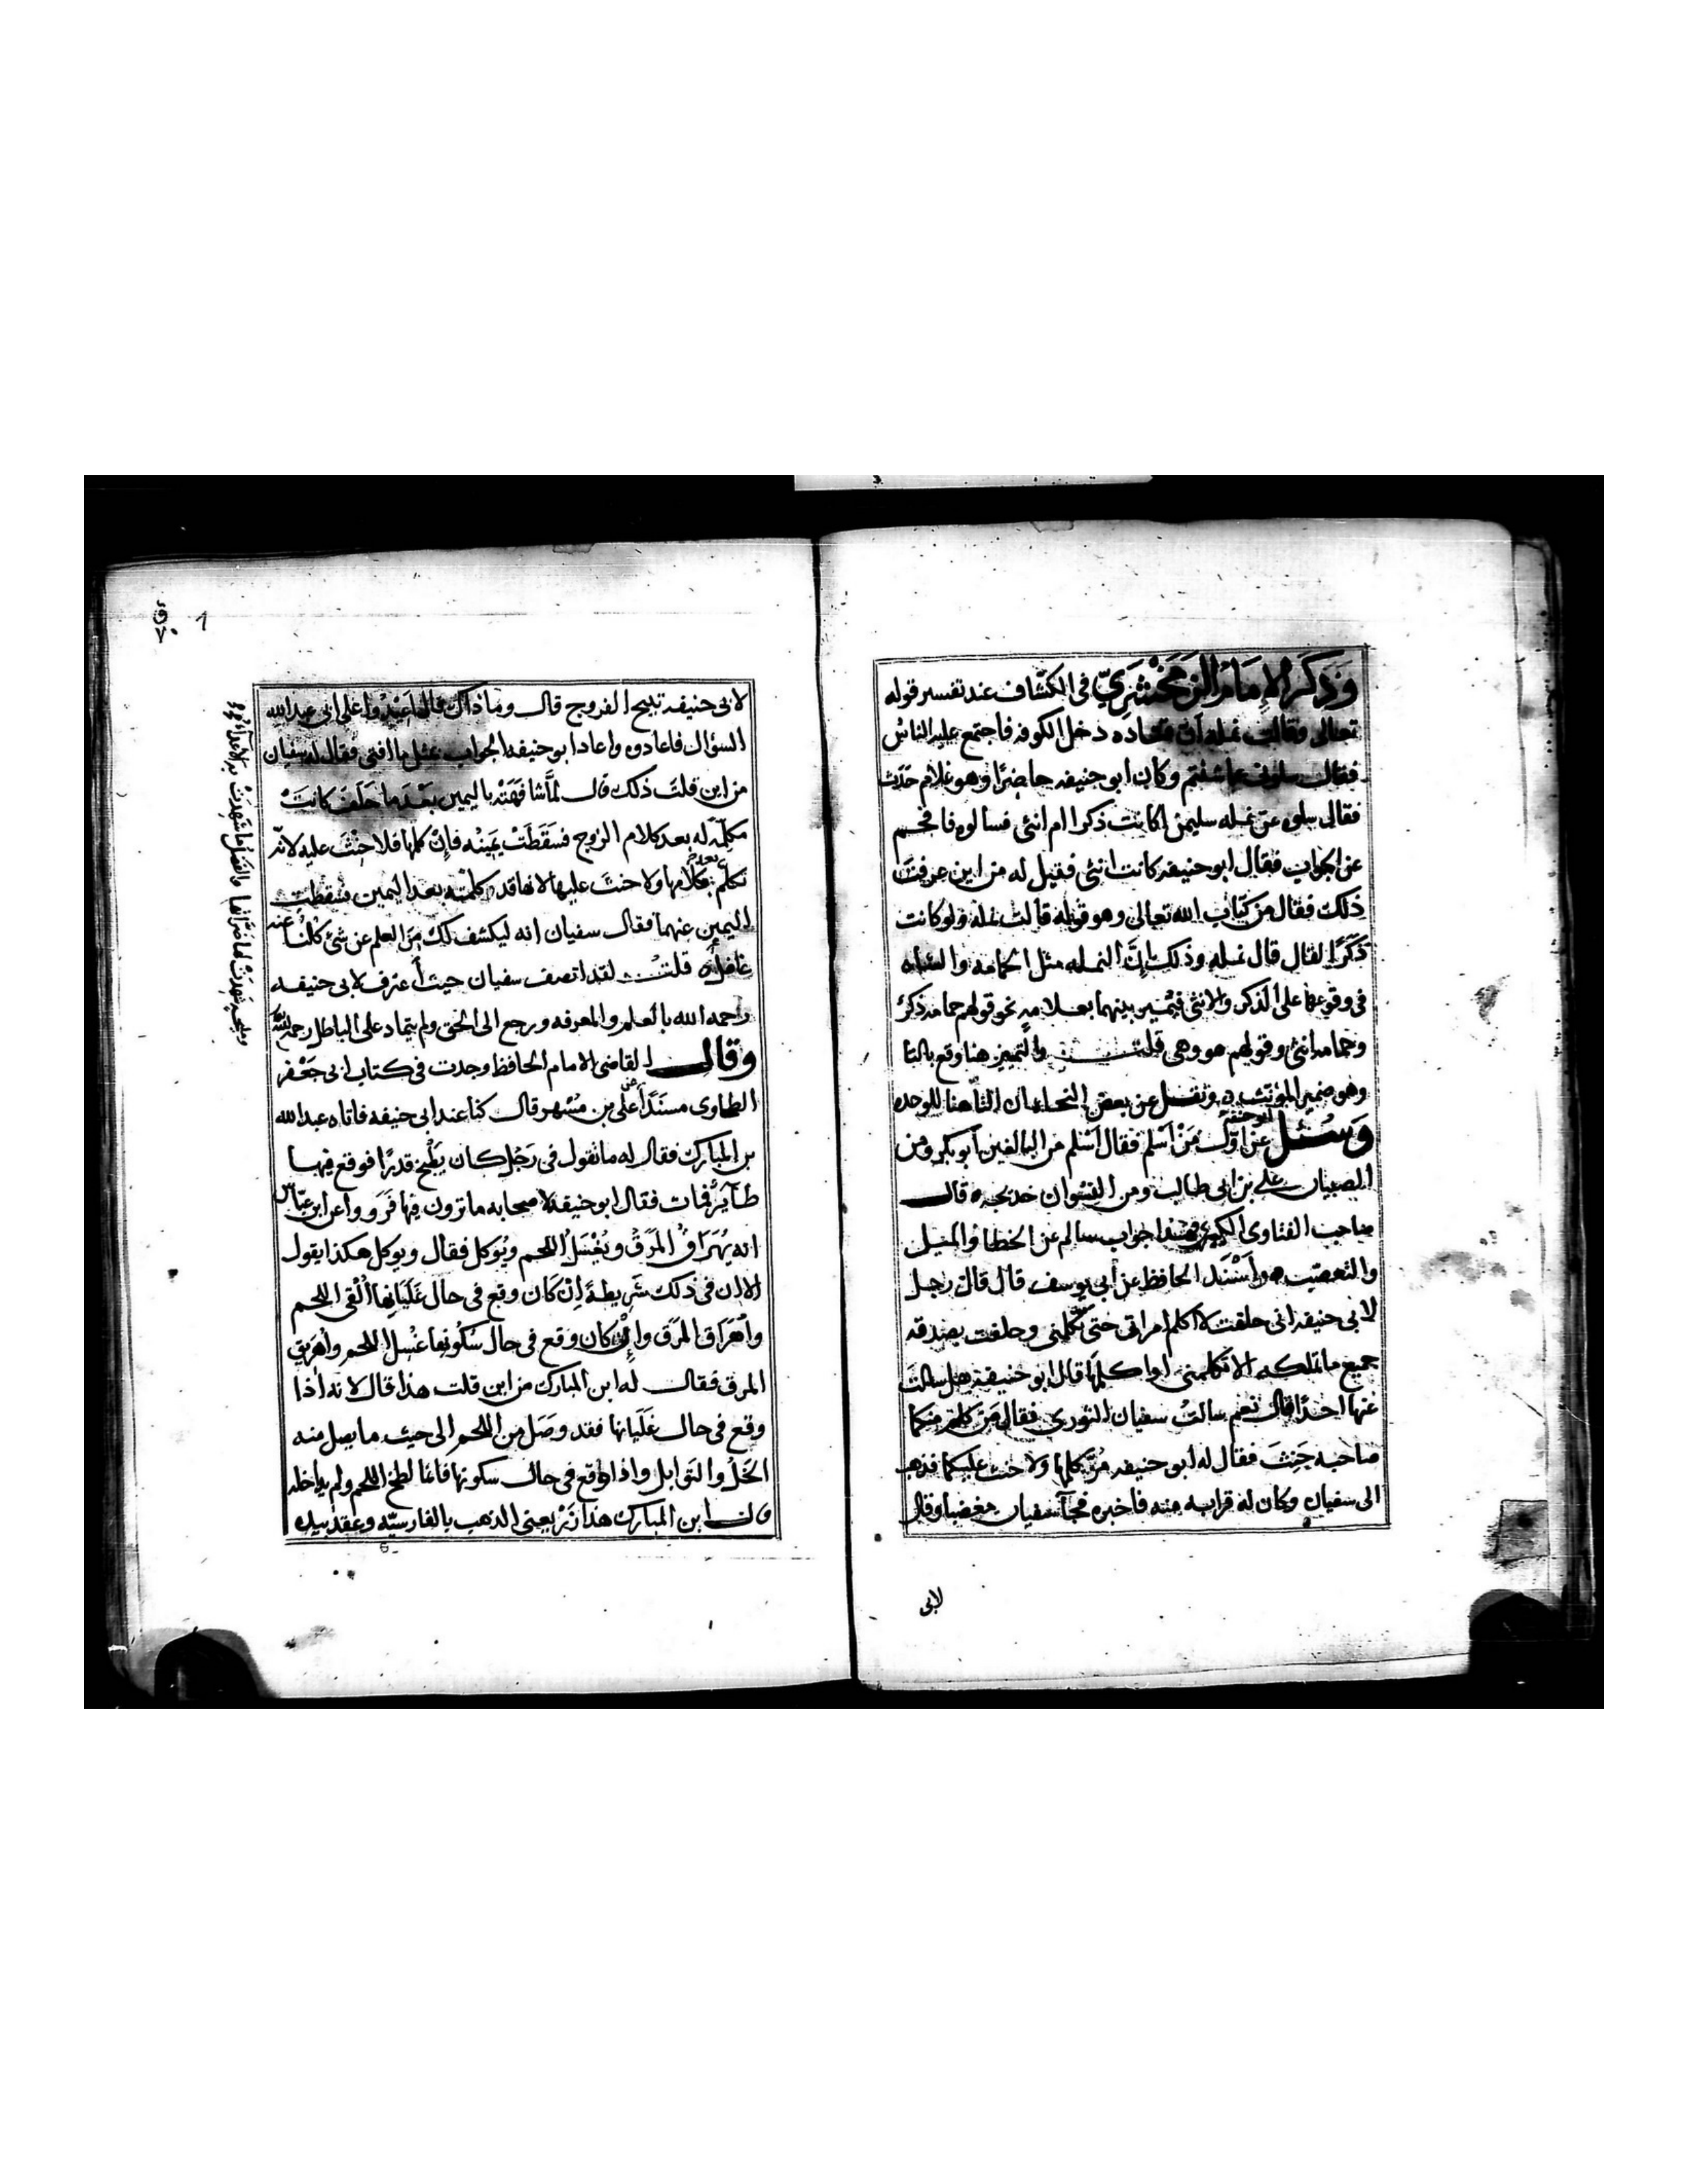 وَذَكَرَ الإِمَامُ الزَّمَخْشَرِيّ في الكشّاف عند تفسير قوله
تعالى وقالت نمله ان قتاده دخل الكوفه فاجتمع عليه الناسُ
فقال سلونى عما شئتم وكان ابو حنيفه حاضِرًا وهو غلام حَدَث
فقال سلوه عن نمله سليمن اكانت ذكرا ام انثى فسالوه فافحم
عن الجواب فقال ابو حنيفه كانت انثى فقيل له من اين عرفتَ
ذلك فقال من كتاب الله تعالى وهو قوله قالت نمله ولو كانت
ذَكَرًا لقال قال نمله وذلك اِنَّ النمله مثل الحمامه والشاه
فى وقوعها على الذكر والانثى فيُميز بينهما بعلامهٍ نحو قولهم حمامه ذكرٌ
وحمامه انثى وقولهم هو وهى قلت والتمييز هنا وقع بالتا
وهو ضمير المؤنث ونقل عن بعض النحاه ان التا هنا للوحده
وَسُئل ابو حنيفه عن اوّل مَنْ اَسْلم فقال اَسْلم من البالغين ابو بكر ومن
الصبيان على بن ابى طالب ومن النسوان خديجه قال
صاحب الفتاوى الكبرى فهذا جواب سالم عن الخطا والميل
والتعصيب واَسْنَد الحافظ عن ابى يوسف قال قال رجل
لابى حنيفه انى حلفت لا اكلم امراتى حتى تكلمنى وحلفت بصدقه
جميع ما تملكه الا تكلمنى او اكلمها قال ابو حنيفه هل سالتَ
عنها احدًا قال نعم سالتُ سفيان الثورى فقال مَن كلم منكما
صاحبه حَنِثَ فقال له ابو حنيفه مُرّ كلمها ولا حنث عليكما فذهب
الى سفيان وكان له قرابه منه فاخبره فجآ سفيان مغضبا وقال
لابى
لابى حنيفه تبيح الفروج قال وما ذاك قال اَعِيْدُوا على ابى عبد الله
السؤال فاعادوه واعاد ابو حنيفه الجواب بمثل ما افتى فقال له سفيان
من اين قلتَ ذلك قال لمَّا شافهَتْه باليمين بَعْدَ ما حَلَفَ كانتْ
مكلِّمة له بعد كلام الزوج فسَقَطَتْ يمَيْنه فاِنْ كلمها فلا حِنْثَ عليه لانّه
تكلّم بعد كلامها ولا حنثَ عليها لانها قد كلمته بعد اليمين فسقطت
اليمين عنهما فقال سفيان انه ليكشف لك مِنَ العلم عن شئ كلنا عنه
غافلُ قلتُ لقد انصف سفيان حيث اعترف لابى حنيفه
رحمه الله بالعلم والمعرفه ورجع الى الحق ولم يتماد على الباطل رحمهما الله
وقال القاضى الامام الحافظ وجدت فى كتاب ابى جَعْفر
الطحاوى مسنَدًا عن على بن مُسْهِر قال كنا عند ابى حنيفه فاتاه عبد الله
بن المبارك فقال له ما تقول فى رَجُلٍ كان يَطْبخ قدرًا فوقع فيها
طآئِرٌ فمات فقال ابو حنيفه لاصحابه ما ترون فيها فَرَوَوا عن ابن عبّاس
انه يُهَرَاقُ المَرَقُ ويُغْسَلُ اللحم ويُوكل فقال ويوكل هكذا يقول
الا ان فى ذلك شَرِيطةً اِنْ كَان وقع فى حال غَلَيَانِها اُلْقى اللحم
واُهْرَاق المَرَق وإن كان وقع فى حال سُكُونها غسْل اللحم واُهْرِيق
المرق فقال له ابن المبارك من اين قلت هذا قال لانه اذا
وقع فى حال غَلَيَانها فقد وصَل من اللحم الى حيث ما يصل منه
الخَلّ والتوابل واذا وقع فى حال سكونها فانما لطخ اللحم ولم يداخله
قال ابن المبارك هذا زَرّ يعنى الذهب بالفارسيّه وعقد بيده
ومليحة شهدت لها ضَرَّاتها والفضل ما شَهِدَتْ به الاعدآءُ
ق
٧٠